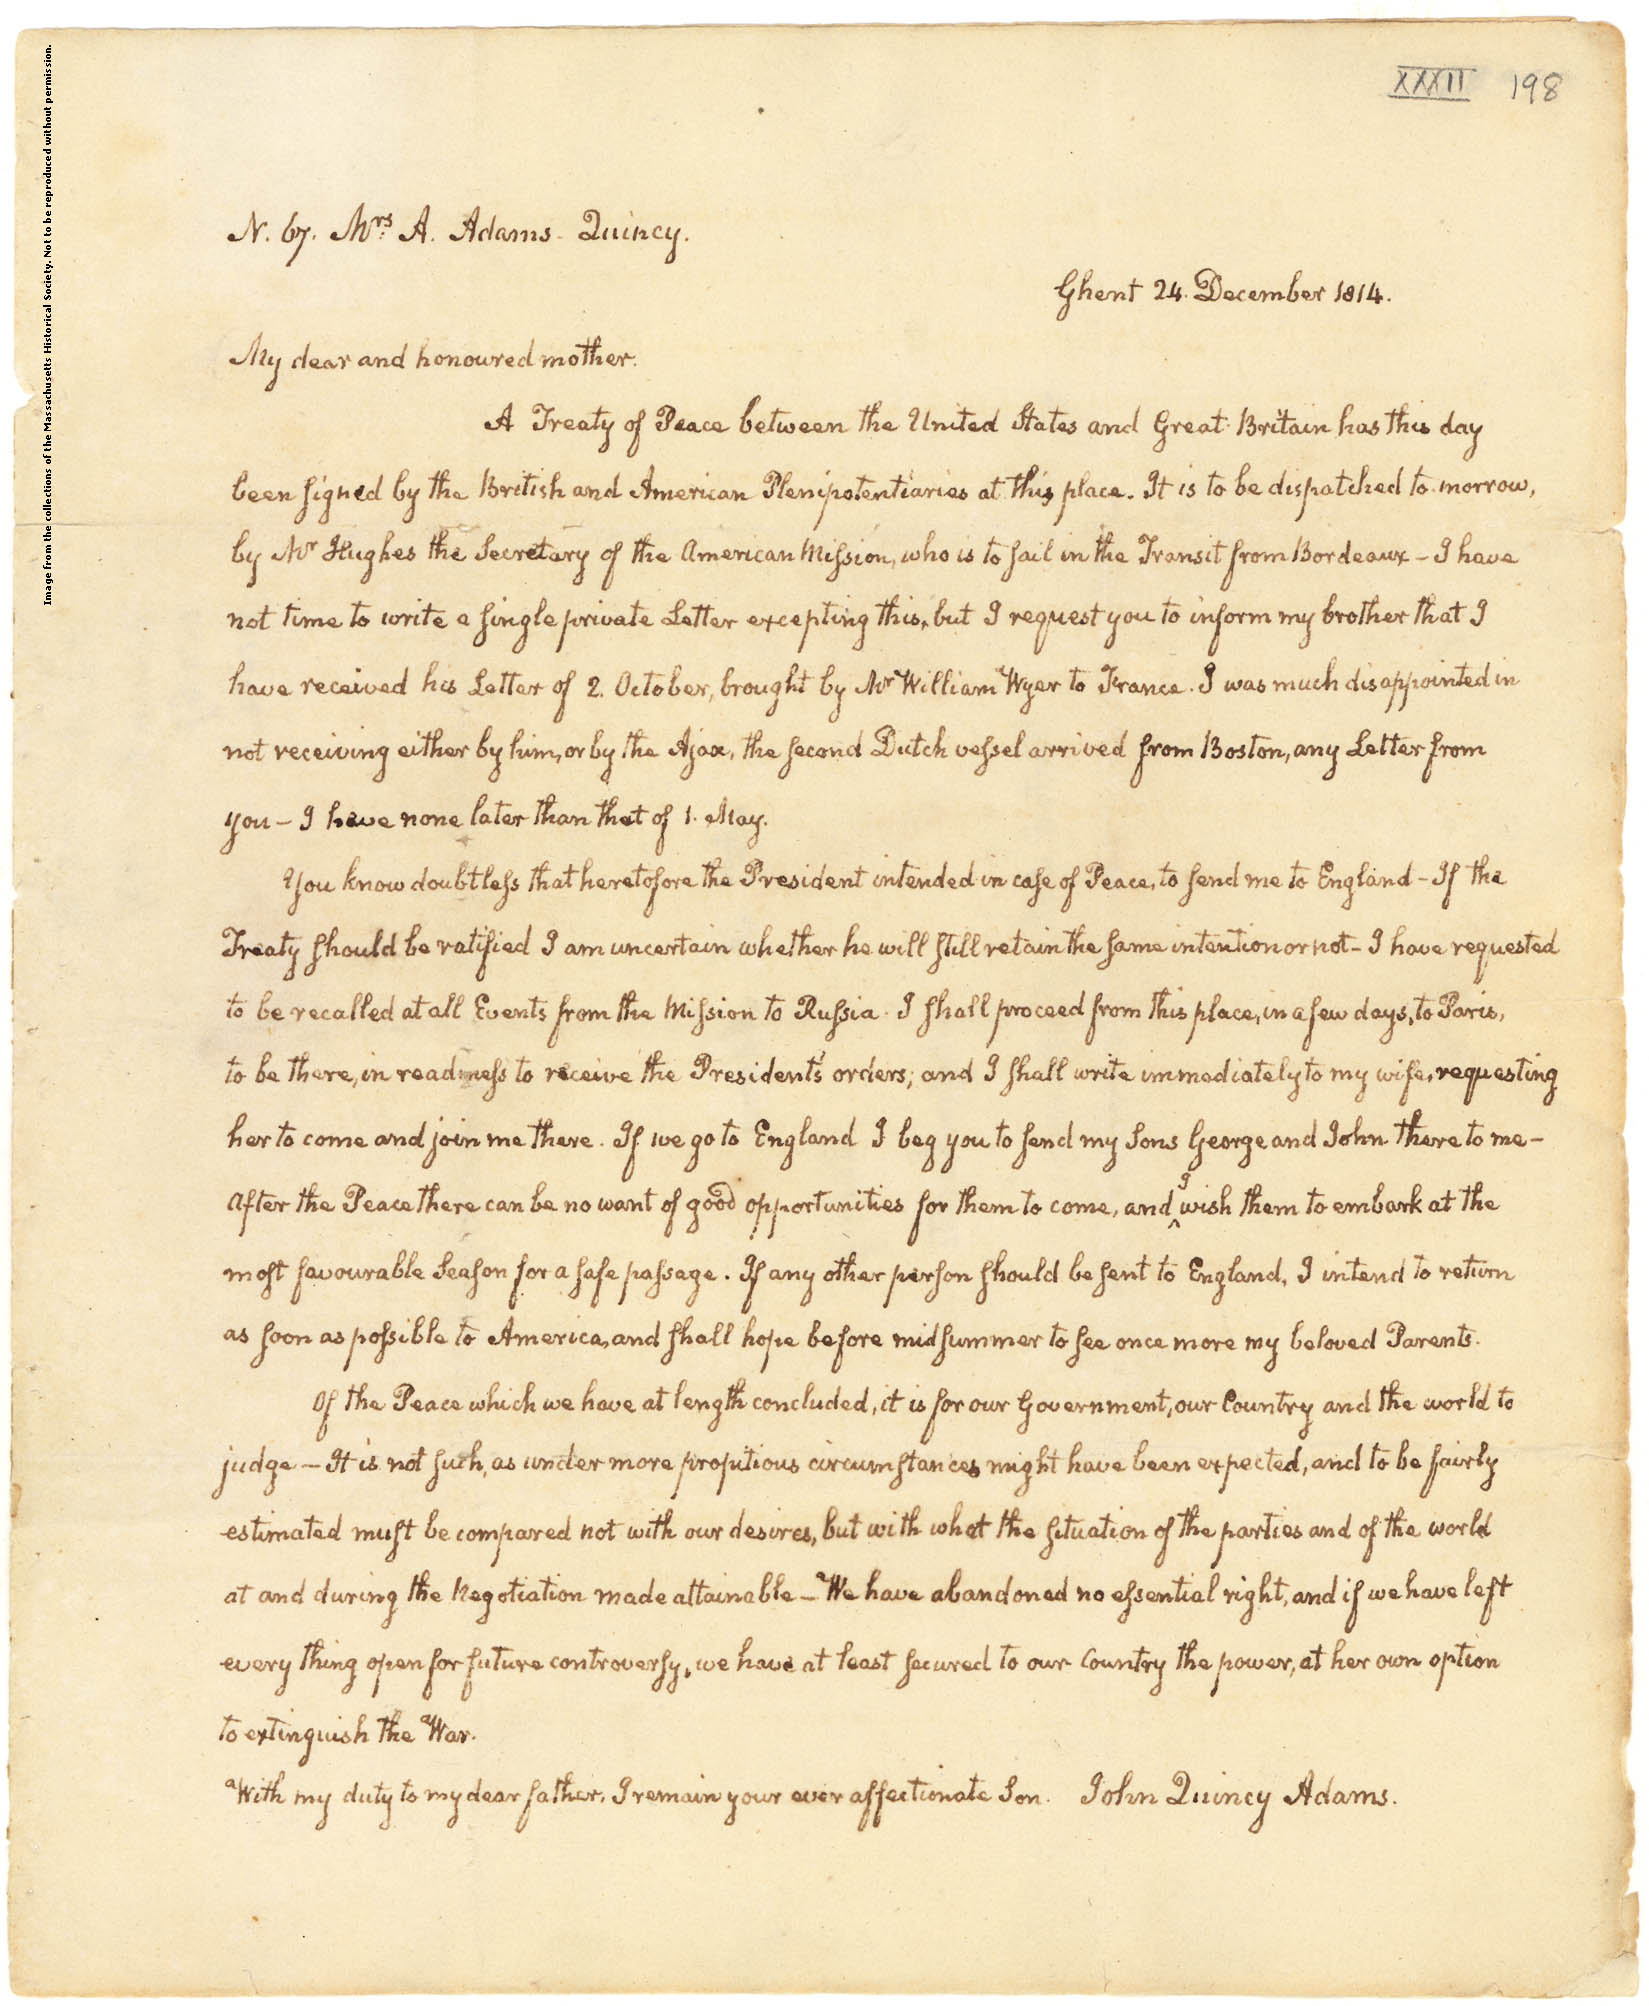 Image from the collections of the Massachusetts Historical Society. Not to be reproduced without permission.
XXXII 198
N. 67. Mrs. A. Adams. Quincy.
Ghent 24. December 1814.
My dear and honoured mother.
A Treaty of Peace between the United States and Great Britain has this day
been signed by the British and American Plenipotentiaries at this place. It is to be dispatched to-morrow,
by Mr Hughes the Secretary of the American Mission, who is to sail in the Transit from Bordeaux – I have
not time to write a single private Letter excepting this, but I request you to inform my brother that I
have received his Letter of 2. October, brought by Mr William Wyer to France. I was much disappointed in
not receiving either by him, or by the Ajax, the second Dutch vessel arrived from Boston, any Letter from
you – I have none later than that of 1. May.
You know doubtless that heretofore the President intended in case of Peace, to send me to England – If the
Treaty should be ratified I am uncertain whether he will still retain the same intention or not – I have requested
to be recalled at all Events from the Mission to Russia. I shall proceed from this place, in a few days, to Paris,
to be there, in readiness to receive the President's orders; and I shall write immediately to my wife, requesting
her to come and join me there. If we go to England I beg you to send my Sons George and John there to me –
After the Peace there can be no want of good opportunities for them to come, and I wish them to embark at the
most favourable Season for a safe passage. If any other person should be sent to England, I intend to return
as soon as possible to America, and shall hope before midsummer to see once more my beloved Parents.
Of the Peace which we have at length concluded, it is for our Government, our Country and the world to
judge – It is not such, as under more propitious circumstances might have been expected, and to be fairly
estimated must be compared not with our desires, but with what the situation of the parties and of the world
at and during the Negotiation made attainable – We have abandoned no essential right, and if we have left
every thing open for future controversy, we have at least secured to our Country the power, at her own option
to extinguish the War.
With my duty to my dear father, I remain your ever affectionate Son. John Quincy Adams.